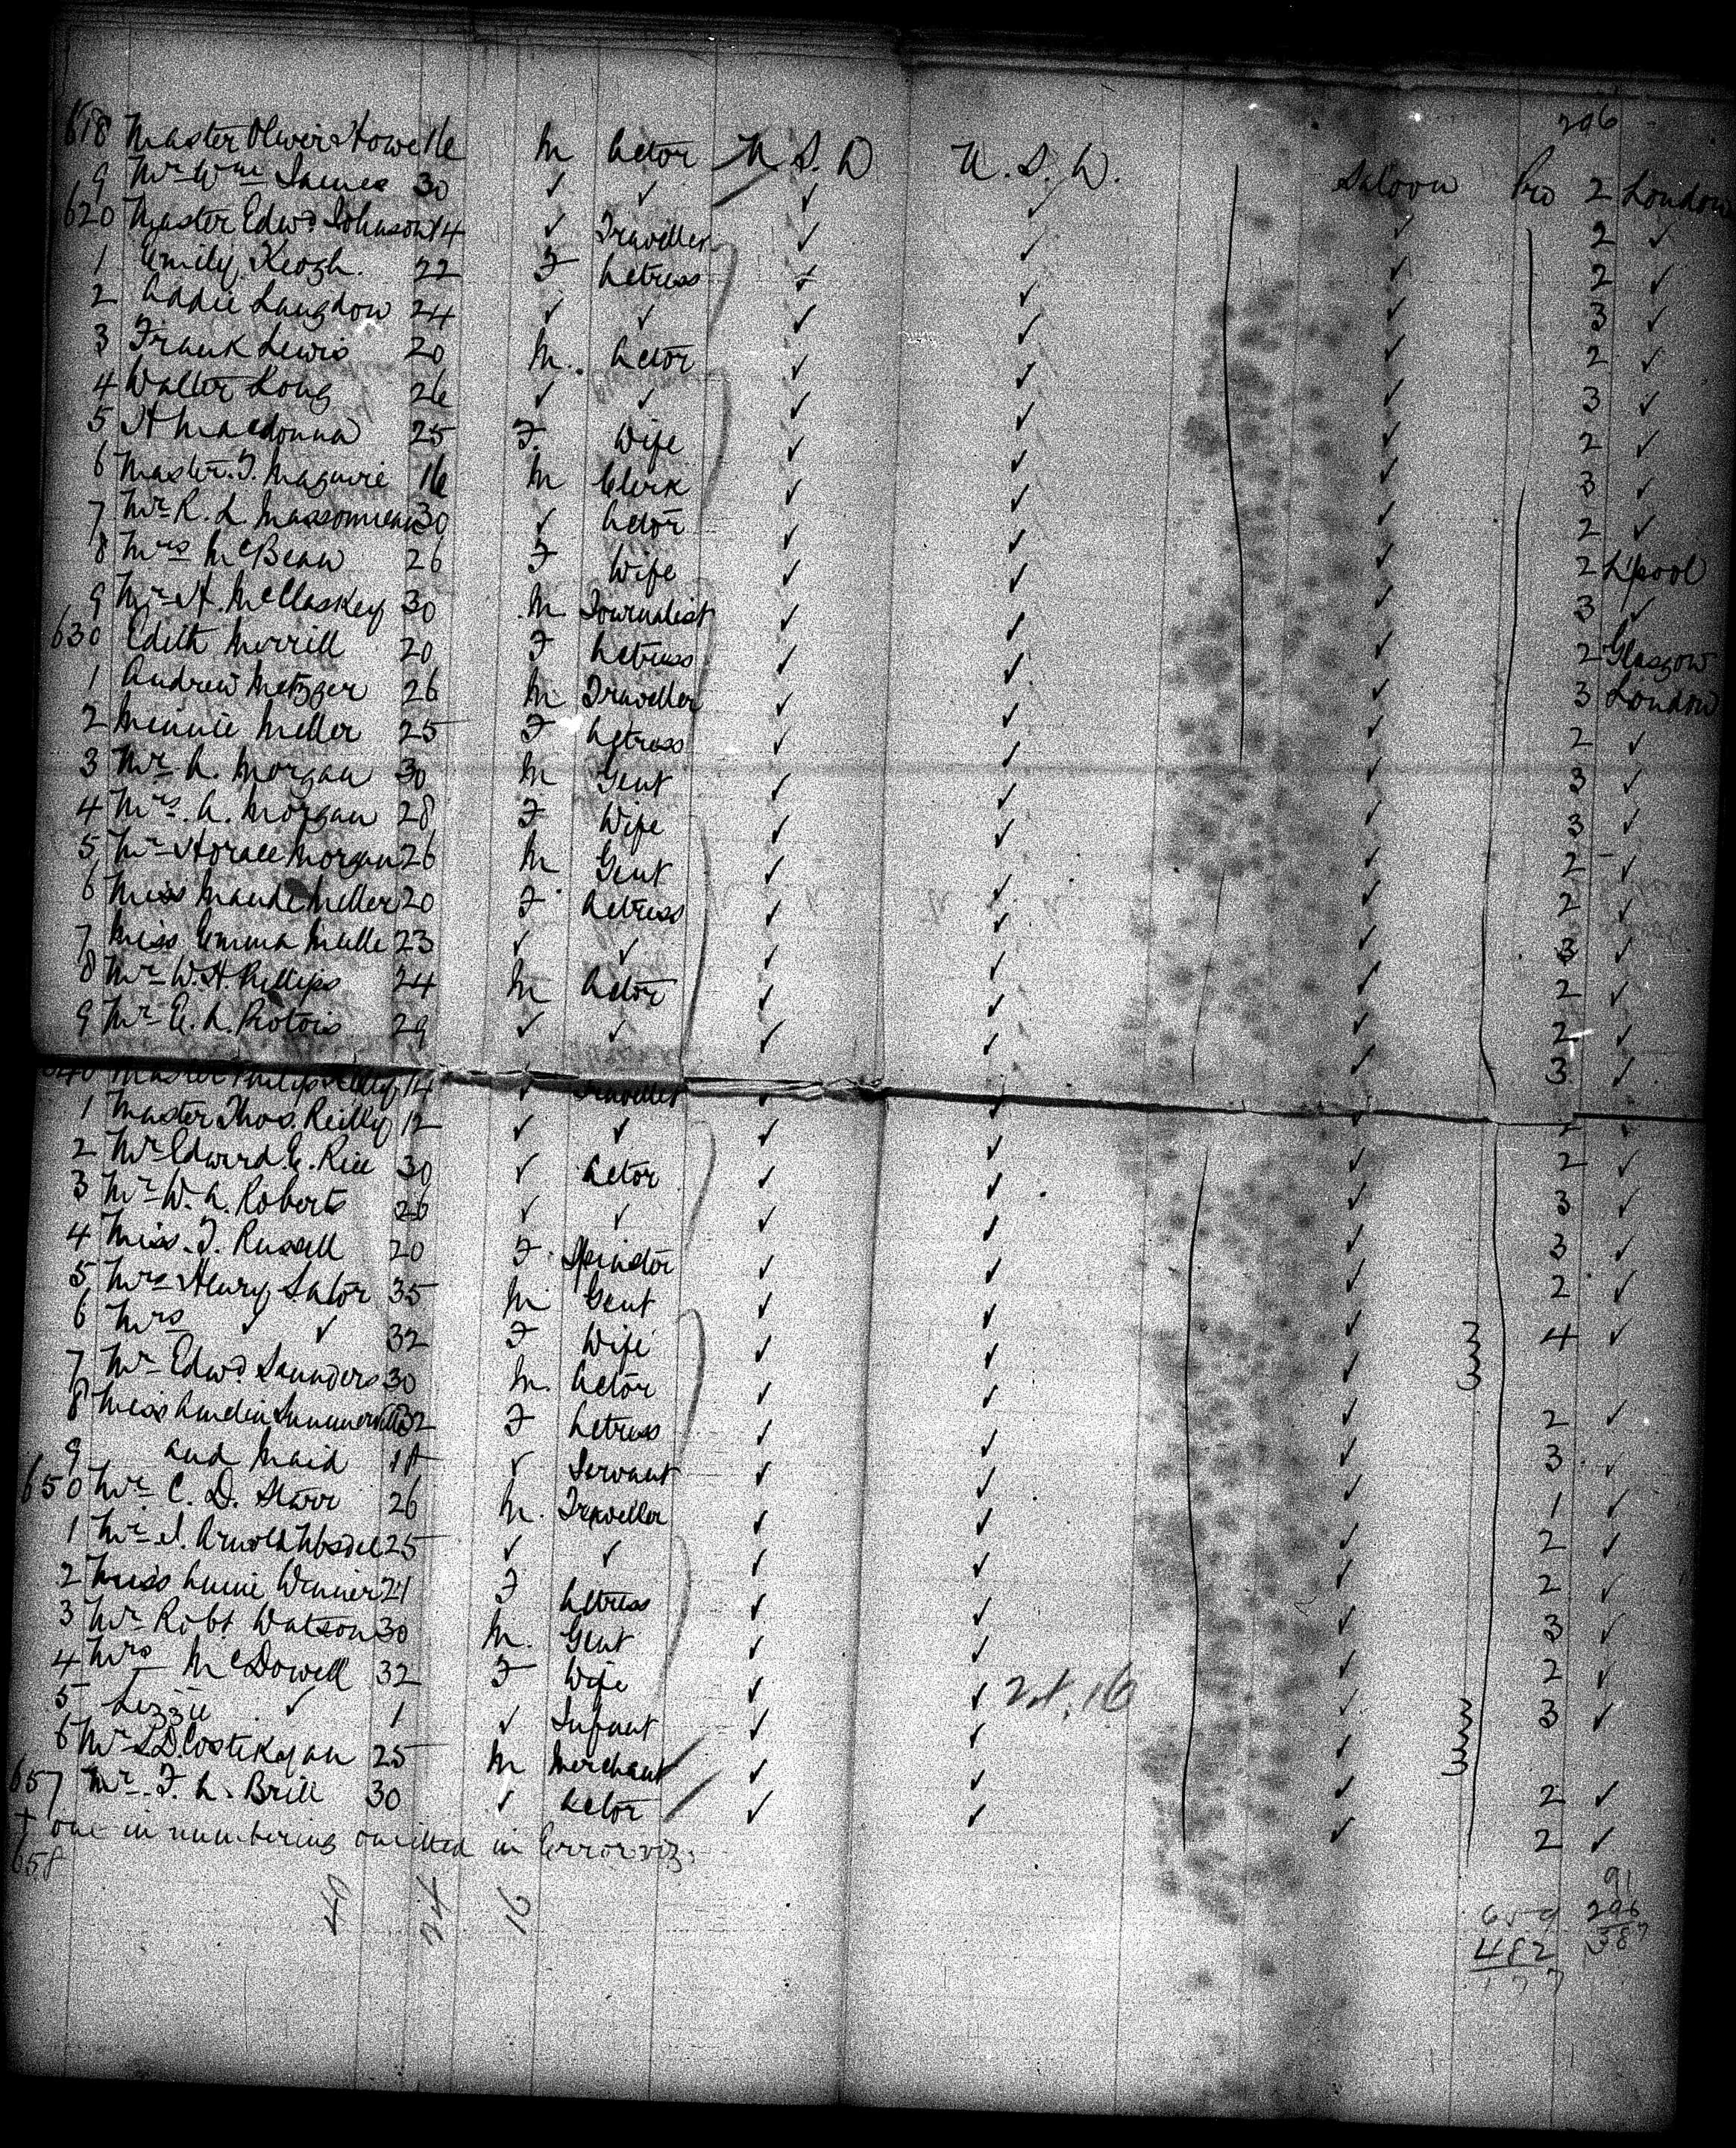 296
618 Master Oliver Howe 16 M Actor U.S.A U.S.A. Saloon Pro 2 London
9 Mr Wm James 30 ✓ ✓ ✓ ✓ ✓ 2 ✓
620 Master Edwd Johnson 14 ✓ Traveller ✓ ✓ ✓ 2 ✓
1 Emily Keogh. 22 F Actress ✓ ✓ ✓ 3 ✓
2 Addie Langdon 24 ✓ ✓ ✓ ✓ ✓ 2 ✓
3 Frank Lewis 20 M. Actor ✓ ✓ ✓ 3 ✓
4 Walter Long 26 ✓ ✓ ✓ ✓ ✓ 2 ✓
5 H Macdonna 25 F. Wife ✓ ✓ ✓ 3 ✓
6 Master. T. Maguire 16 M Clerk ✓ ✓ ✓ 2 ✓
7 Mr R. L. Massonneau 30 ✓ Actor ✓ ✓ ✓ 2 Lpool
8 Mrs McBean 26 F Wife ✓ ✓ ✓ 3 ✓
9 Mr H. McClaskey 30 M Journalist ✓ ✓ ✓ 2 Glasgow
630 Edith Merrill 20 F Actress ✓ ✓ ✓ 3 London
1 Andrew Metzger 26 M Traveller ✓ ✓ ✓ 2 ✓
2 Minnie Miller 25 F Actress ✓ ✓ ✓ 3 ✓
3 Mr A. Morgan 30 M Gent ✓ ✓ ✓ 3 ✓
4 Mrs. A. Morgan 28 F Wife ✓ ✓ ✓ 2 ✓
5 Mr Horace Morgan 26 M Gent ✓ ✓ ✓ 2 ✓
6 Miss Maude Miller 20 F Actress ✓ ✓ ✓ 3 ✓
7 Miss Emma 23 ✓ ✓ ✓ ✓ ✓ 2 ✓
8 Mr W. H. Phillips 24 M Actor ✓ ✓ ✓ 2 ✓
9 Mr E. A. 29 ✓ ✓ ✓ ✓ ✓ 3 ✓
640 Master Philip Reilly 14 ✓ Traveller ✓ ✓ ✓ 2 ✓
1 Master Thos. Reilly 12 ✓ ✓ ✓ ✓ ✓ 2 ✓
2 Mr Edward E. Rice 30 ✓ Actor ✓ ✓ ✓ 3 ✓
3 Mr W. A. Roberts 26 ✓ ✓ ✓ ✓ ✓ 3 ✓
4 Miss. F. Russell 20 F. Spinster ✓ ✓ ✓ 2 ✓
5 Mrs Henry Sator 35 M Gent ✓ ✓ ✓ 4 ✓
6 Mrs ✓ ✓ 32 F Wife ✓ ✓ ✓
7 Mr Edwd Saunders 30 M. Actor ✓ ✓ ✓ 2 ✓
8 Miss Amelia Summerville 32 F Actress ✓ ✓ ✓ 3 ✓
9 and Maid 18 ✓ Servant ✓ ✓ ✓ 1 ✓
650 Mr. C. D. Starr 26 M. Traveller ✓ ✓ ✓ 2 ✓
1 Mr J. Arnold 25 ✓ ✓ ✓ ✓ ✓ 2 ✓
2 Miss Annie Winner 21 F Actress ✓ ✓ ✓ 3 ✓
3 Mr Robt Watson 30 M. Gent ✓ ✓ ✓ 2 ✓
4 Mrs McDowell 32 F Wife ✓ ✓ 2d. 16 ✓ 3 ✓
5 Lizzie ✓ 1 ✓ Infant ✓ ✓ ✓
6 Mr S D. Costikyan 25 M Merchant ✓ ✓ ✓ 2 ✓
657 Mr. F. A. Brill 30 ✓ Actor ✓ ✓ ✓ 2 ✓
+ one in numbering omitted in Error viz.
658
40 24 16
91
659 296
482 387
177